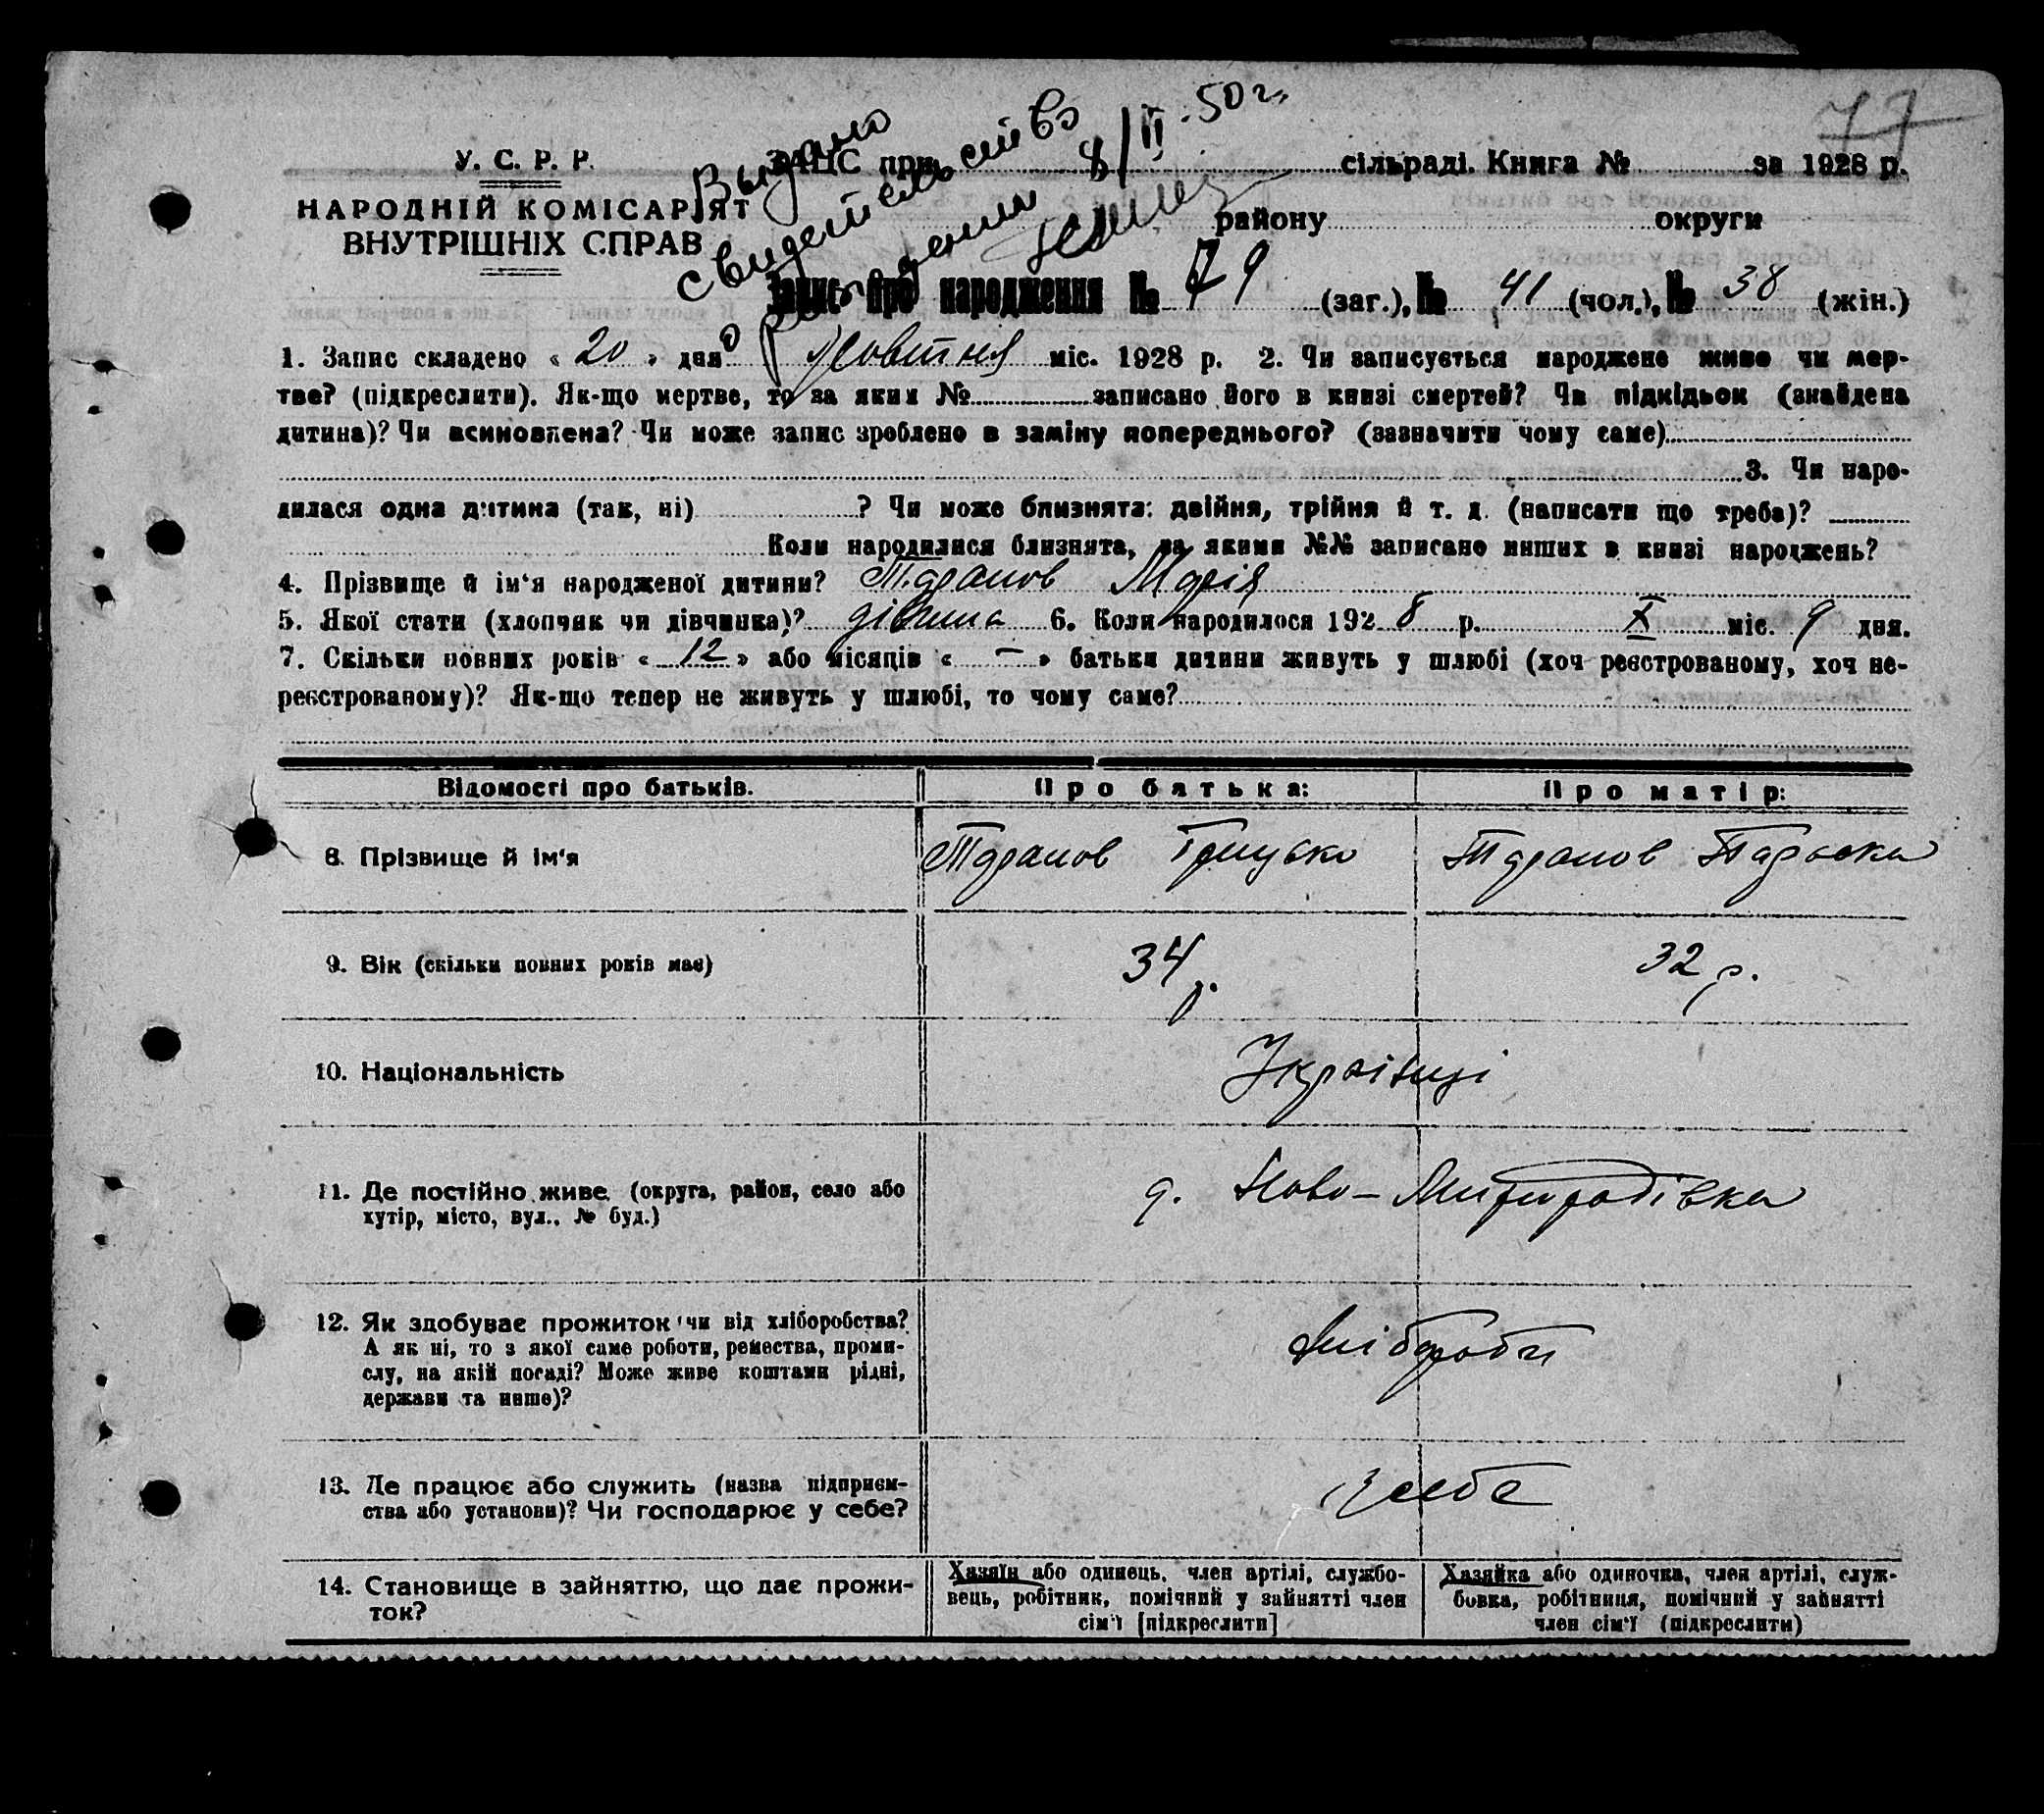 77
Выдано
свидетельство
о рождении 8/II. 50 г.
У. С. Р. Р.
НАРОДНІЙ КОМІСАРІЯТ
ВНУТРІШНІХ СПРАВ
ЗАЦС при сільраді. Книга № за 1928 р.
району округи
Запис про народження № 79 (заг.), № 41 (чол.), № 38 (жін.)
1. Запис складено « 20 » дня Жовтня міс. 1928 р. 2. Чи записується народжене живе чи мер-
тве? (підкреслити). Як-що мертве, то за яким № записано його в книзі смертей? Чи підкідьок (знайдена
дитина)? Чи всиновлена? Чи може запис зроблено в заміну попереднього? (зазначити чому саме)
3. Чи наро-
дилася одна дитина (так, ні) ? Чи може близнята: двійня, трійня й т. д. (написати що треба)?
Коли народилися близнята, за якими №№ записано инших в книзі народжень?
4. Прізвище й ім‘я народженої дитини? Таранов Марія
5. Якої стати (хлопчик чи дівчинка)? дівчина 6. Коли народилося 1928 р. X міс. 9 дня.
7. Скільки повних років « 12 » або місяців « — » батьки дитини живуть у шлюбі (хоч реєстрованому, хоч не-
реєстрованому)? Як-що тепер не живуть у шлюбі, то чому саме?
Відомості про батьків. Про батька: Про матір:
8. Прізвище й ім‘я Таранов Грицько Таранов Параска
9. Вік (скільки повних років має) 34 р. 32 р.
10. Національність Українці
11. Де постійно живе (округа, район, село або
хутір, місто, вул., № буд.) д. Ново-Миргородівка
12. Як здобуває прожиток чи від хліборобства?
А як ні, то з якої саме роботи, ремества, проми-
слу, на якій посаді? Може живе коштами рідні,
держави та инше)? Хлібороби
13. Де працює або служить (назва підприєм-
ства або установи)? Чи господарює у себе? У себе
14. Становище в зайняттю, що дає прожи-
ток?
Хазяїн або одинець, член артілі, службо-
вець, робітник, помічний у зайнятті член
сім‘ї [підкреслити]
Хазяйка або одиночка, член артілі, служ-
бовка, робітниця, помічний у зайнятті
член сім‘ї (підкреслити)